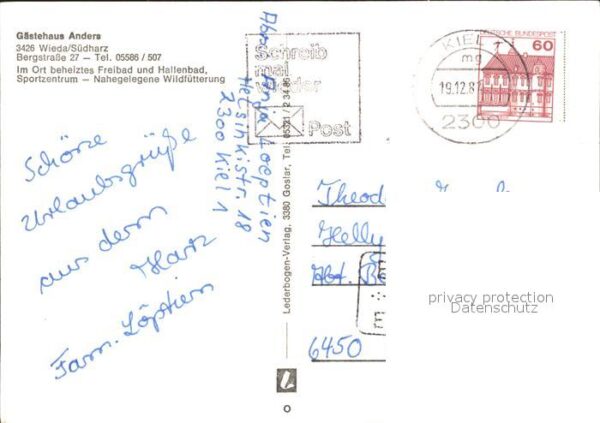 Gästehaus Anders
3426 Wieda/Südharz
Bergstraße 27 – Tel. 05586 / 507
Im Ort beheiztes Freibad und Hallenbad,
Sportzentrum – Nahegelegene Wildfütterung
Schöne
Urlaubsgrüße
aus dem
Harz
Fam. Löptien
Helsinkistr. 18
2300 Kiel 1
Lederbogen-Verlag, 3380 Goslar, Tel. 05321 / 2 34 86
Schreib
mal
wieder
Post
KIEL 1
mg
19.12.8
2300
DEUTSCHE BUNDESPOST
60
Theod
Helly
Abt.
6450
privacy protection
Datenschutz